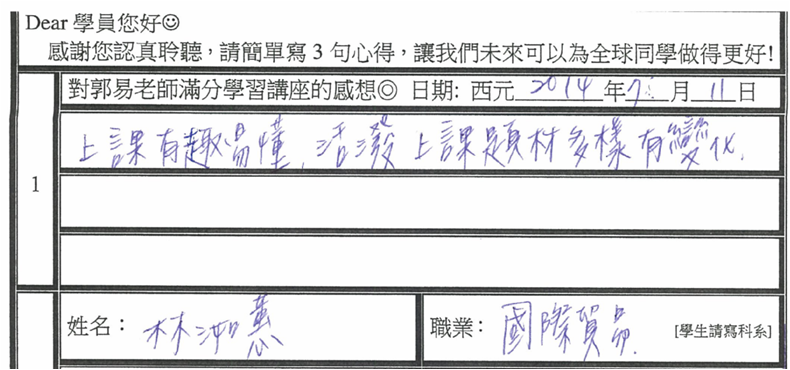 Dear 學員您好☺
感謝您認真聆聽，請簡單寫3句心得，讓我們未來可以為全球同學做得更好!
對郭易老師滿分學習講座的感想◎ 日期: 西元 2014 年 7 月 11 日
上課有趣易懂,活潑上課題材多樣有變化.
1
姓名： 林淑蕙
職業： 國際貿易. [學生請寫科系]